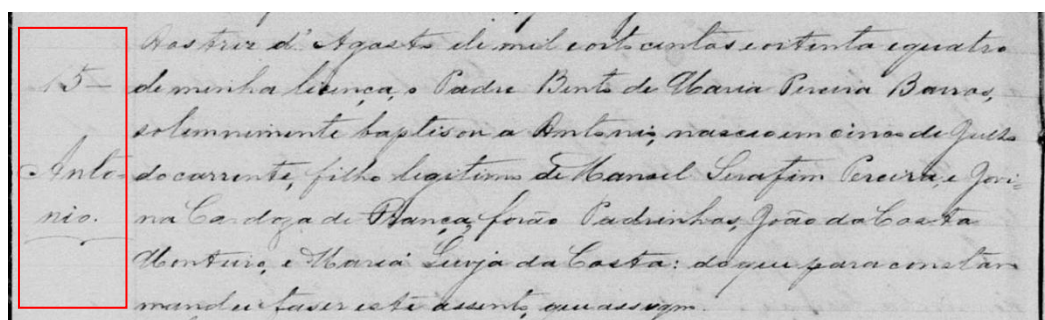 Aos treze d'Agosto de mil oito centos e oitenta e quatro
15- de minha licença, o Padre Bento de Maria Pereira Barros,
solemnimente baptisou a Antonio, nascio em cinco de Julho
Anto- do corrente, filho legitimo de Manoel Serafim Pereira, e Jovi-
nio. na Cardoza de França, forão Padrinhos, João da Costa
Monteiro, e Maria da Costa: do que para constar
mandei faser este assento, que assigno.